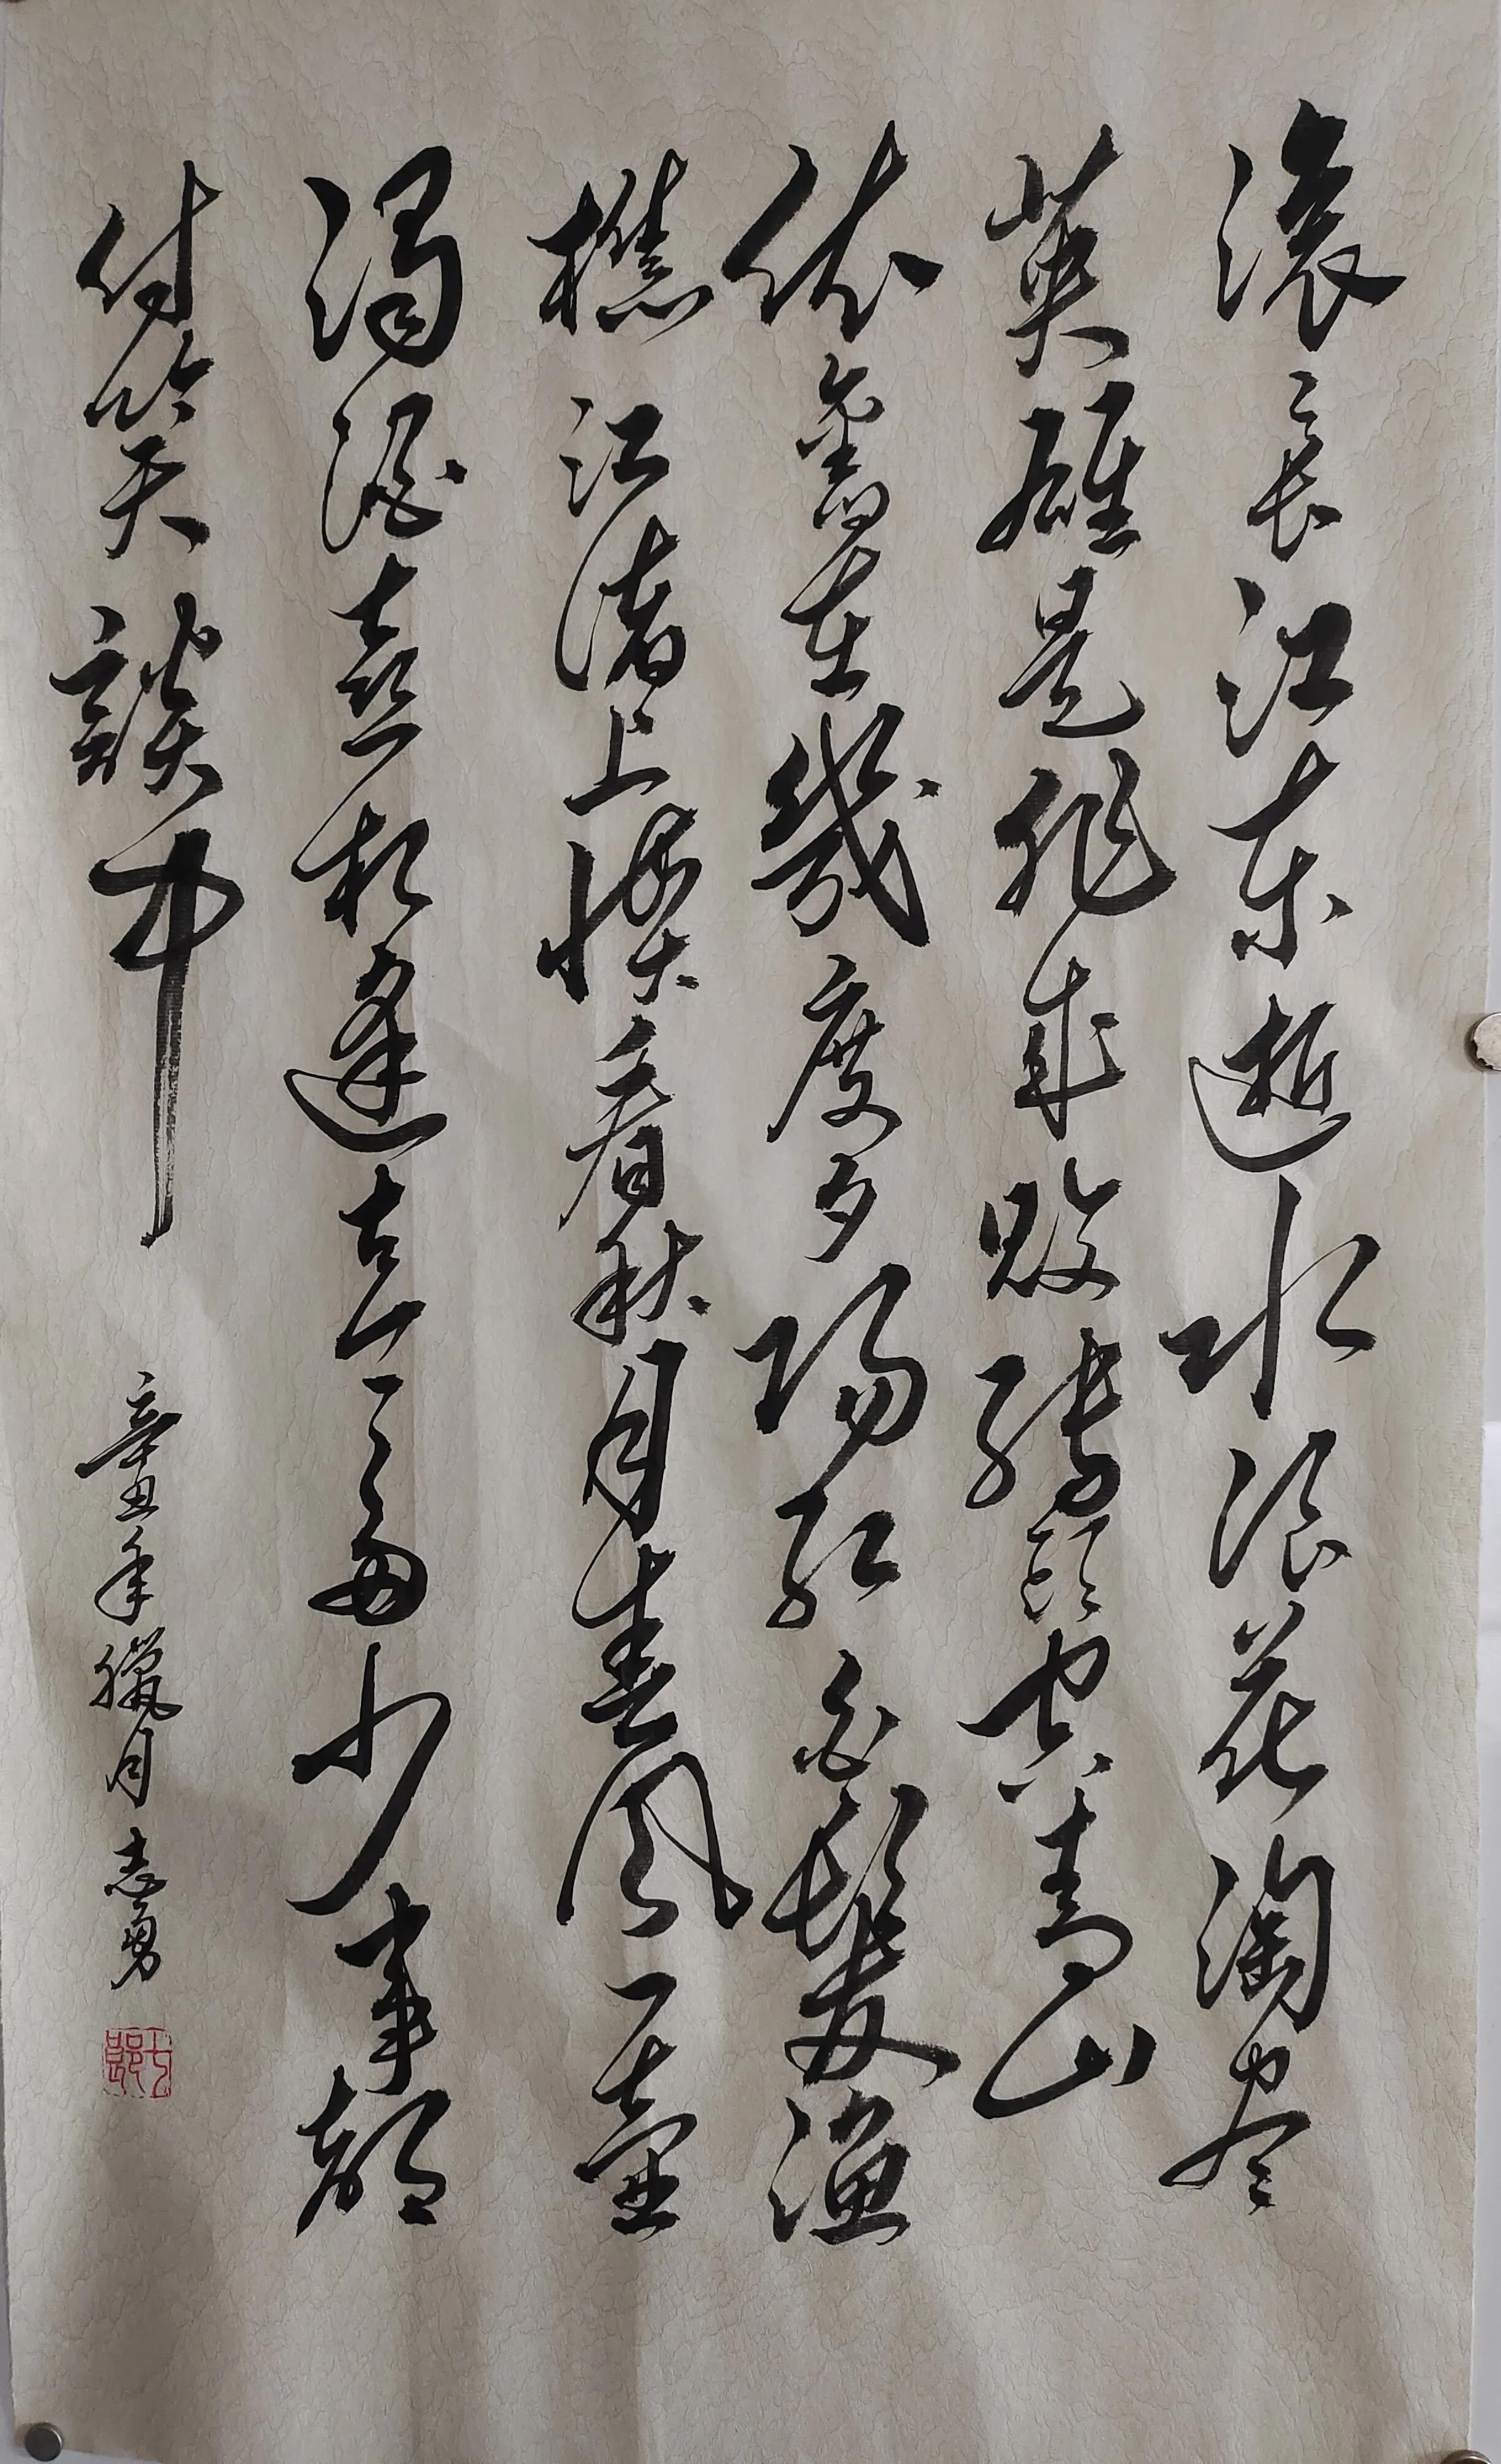 滚々长江东逝水浪花淘尽
英雄是非成败转头空青山
依舊在幾度夕阳红白髮渔
樵江渚上惯看秋月春风一壶
浊酒喜相逢古今多少事都
付笑談中
辛丑年臘月志勇